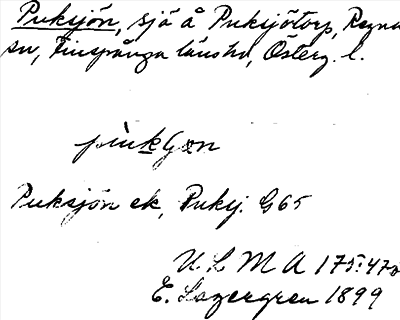 Puksjön, sjö å Puksjötorp, Regna
sn, Finspånga länshd, Österg. l.
Puksjön ek, Pukij. G65
U L M A 175:470
E. Lagergren 1899